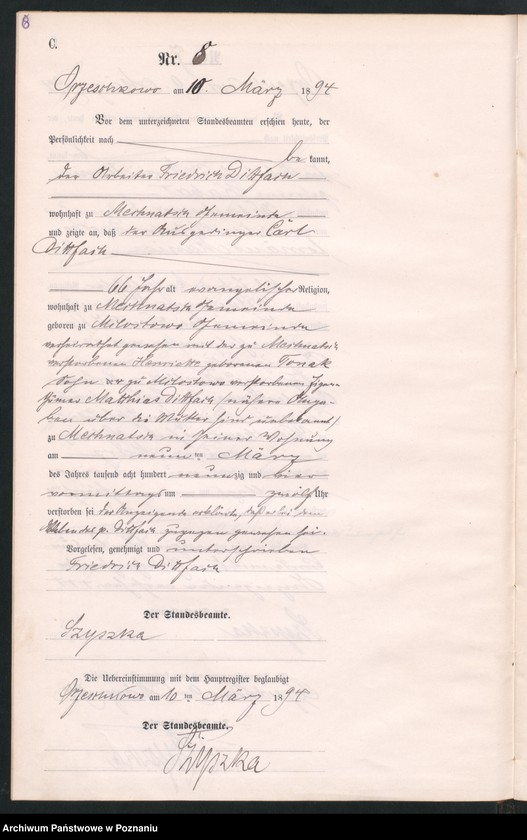 8
C.
Nr. 8
Orzeschkowo am 10. März 1894
Vor dem unterzeichneten Standesbeamten erschien heute, der
Persönlichkeit nach
be kannt,
der Arbeiter Friedrich Dittfach
wohnhaft zu Mechnatsch Gemeinde
und zeigte an, daß der Ausgedinger Carl
Dittfach
66 Jahr alt evangelischer Religion,
wohnhaft zu Mechnatsch Gemeinde
geboren zu Milostowo Gemeinde
verheirathet gewesen mit der zu Mechnatsch
verstorbenen Henriette geborenen
Sohn der zu Milostowo verstorbenen Eigen-
thümer Matthias Dittfach (nähere Anga-
ben über die Mutter sind unbekannt)
zu Mechnatsch in seiner Wohnung
am neun ten März
des Jahres tausend acht hundert neunzig und vier
vormittags um zwölf Uhr
verstorben sei der Anzeigende erklärte, daß er bei dem
Ableben des p. Dittfach zugegen gewesen sei.
Vorgelesen, genehmigt und unterschrieben
Friedrich Dittfach
Der Standesbeamte.
Szyszka
Die Uebereinstimmung mit dem Hauptregister beglaubigt
Orzeschkowo am 10 ten März 1894
Der Standesbeamte.
Szyszka
Archiwum Państwowe w Poznaniu